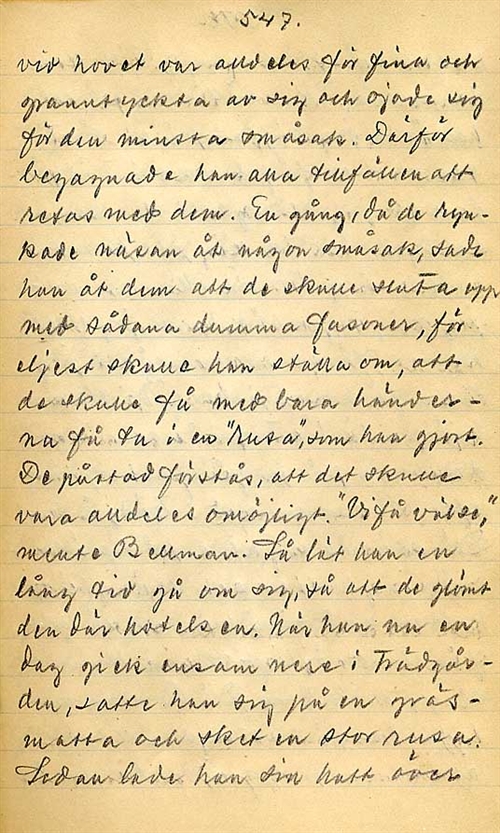 547.
vid hovet var alldeles för fina och
granntyckta av sig och ojade sig
för den minsta småsak. Därför
begagnade han alla tillfällen att
retas med dem. En gång, då de ryn-
kade näsan åt någon småsak, sade
han åt dem att de skulle sluta upp
med sådana dumma fasoner, för
eljest skulle han ställa om, att
de skulle få med bara händer-
na få ta i en "rusa", som han gjort.
De påstod förstås, att det skulle
vara alldeles omöjligt. "Vi få väl se,"
mente Bellman. Så lät han en
lång tid gå om sig, så att de glömt
den där hotelsen. När han nu en
dag gick ensam nere i Trädgår-
den, satte han sig på en gräs-
matta och sket en stor rusa.
Sedan lade han sin hatt över